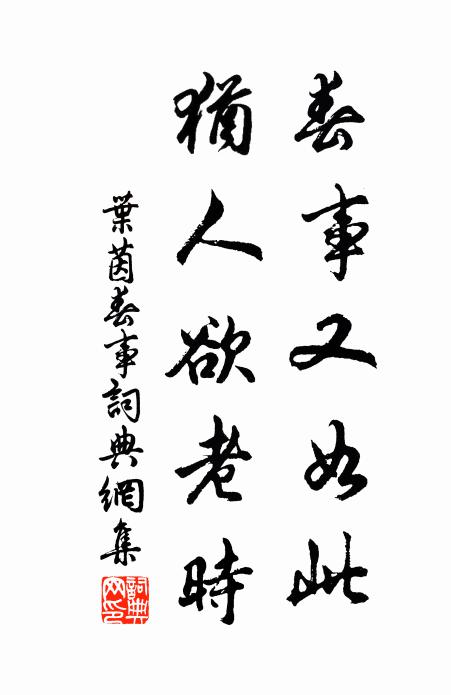 春事又如此
猶人欲老時
葉茵春事詞典網集
詞典
网印